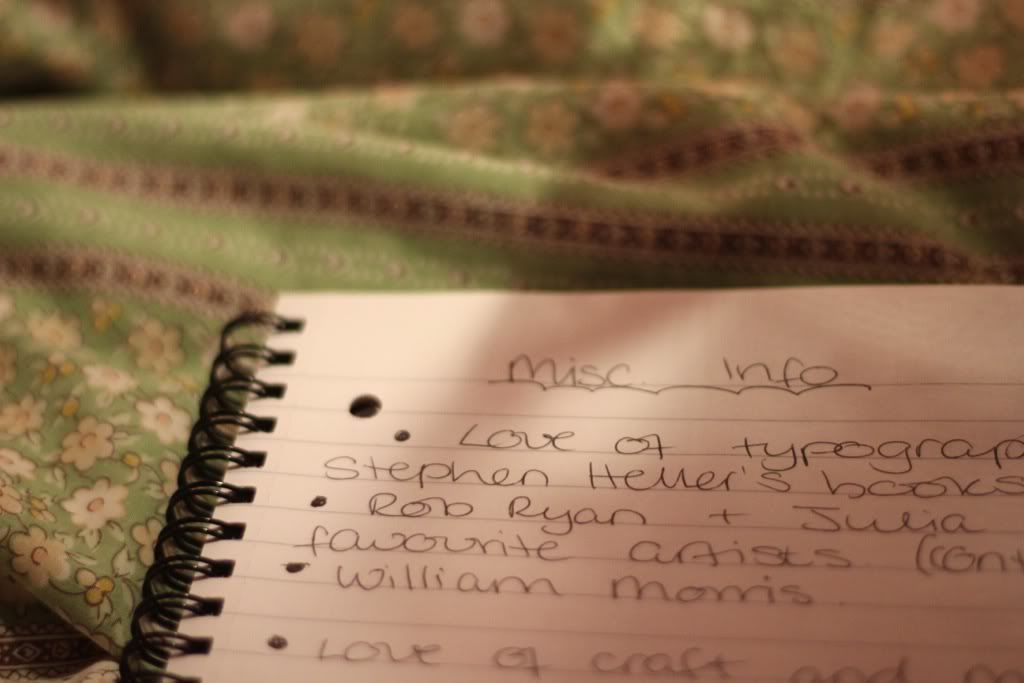 Misc Info
• Love of typograp
Stephen Heller's books
• Rob Ryan + Julia
favourite artists (cont
• William Morris
• Love of craft and m